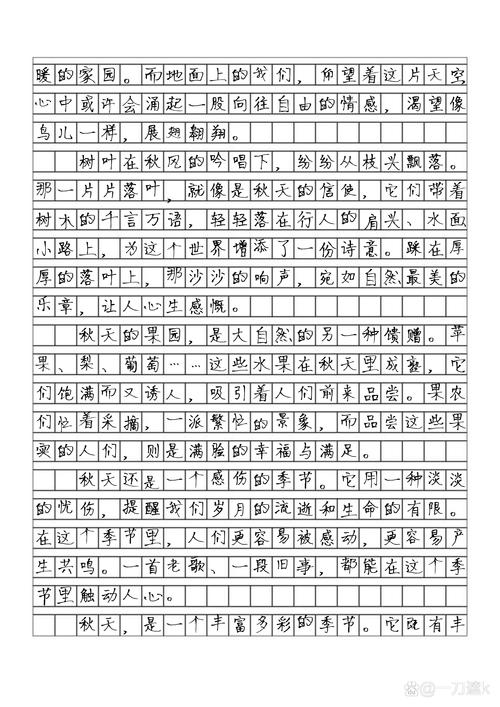 暖的家园。而地面上的我们，仰望着这片天空
心中或许会涌起一股向往自由的情感，渴望像
鸟儿一样，展翅翱翔。
树叶在秋风的吟唱下，纷纷从枝头飘落。
那一片片落叶，就像是秋天的信使，它们带着
树木的千言万语，轻轻落在行人的肩头、水面
小路上，为这个世界增添了一份诗意。踩在厚
厚的落叶上，那沙沙的响声，宛如自然最美的
乐章，让人心生感慨。
秋天的果园，是大自然的另一种馈赠。苹
果、梨、葡萄……这些水果在秋天里成熟，它
们饱满而又诱人，吸引着人们前来品尝。果农
们忙着采摘，一派繁忙的景象，而品尝这些果
实的人们，则是满脸的幸福与满足。
秋天还是一个感伤的季节。它用一种淡淡
的忧伤，提醒我们岁月的流逝和生命的有限。
在这个季节里，人们更容易被感动，更容易产
生共鸣。一首老歌、一段旧事，都能在这个季
节里触动人心。
秋天，是一个丰富多彩的季节。它既有丰
@一刀濵k